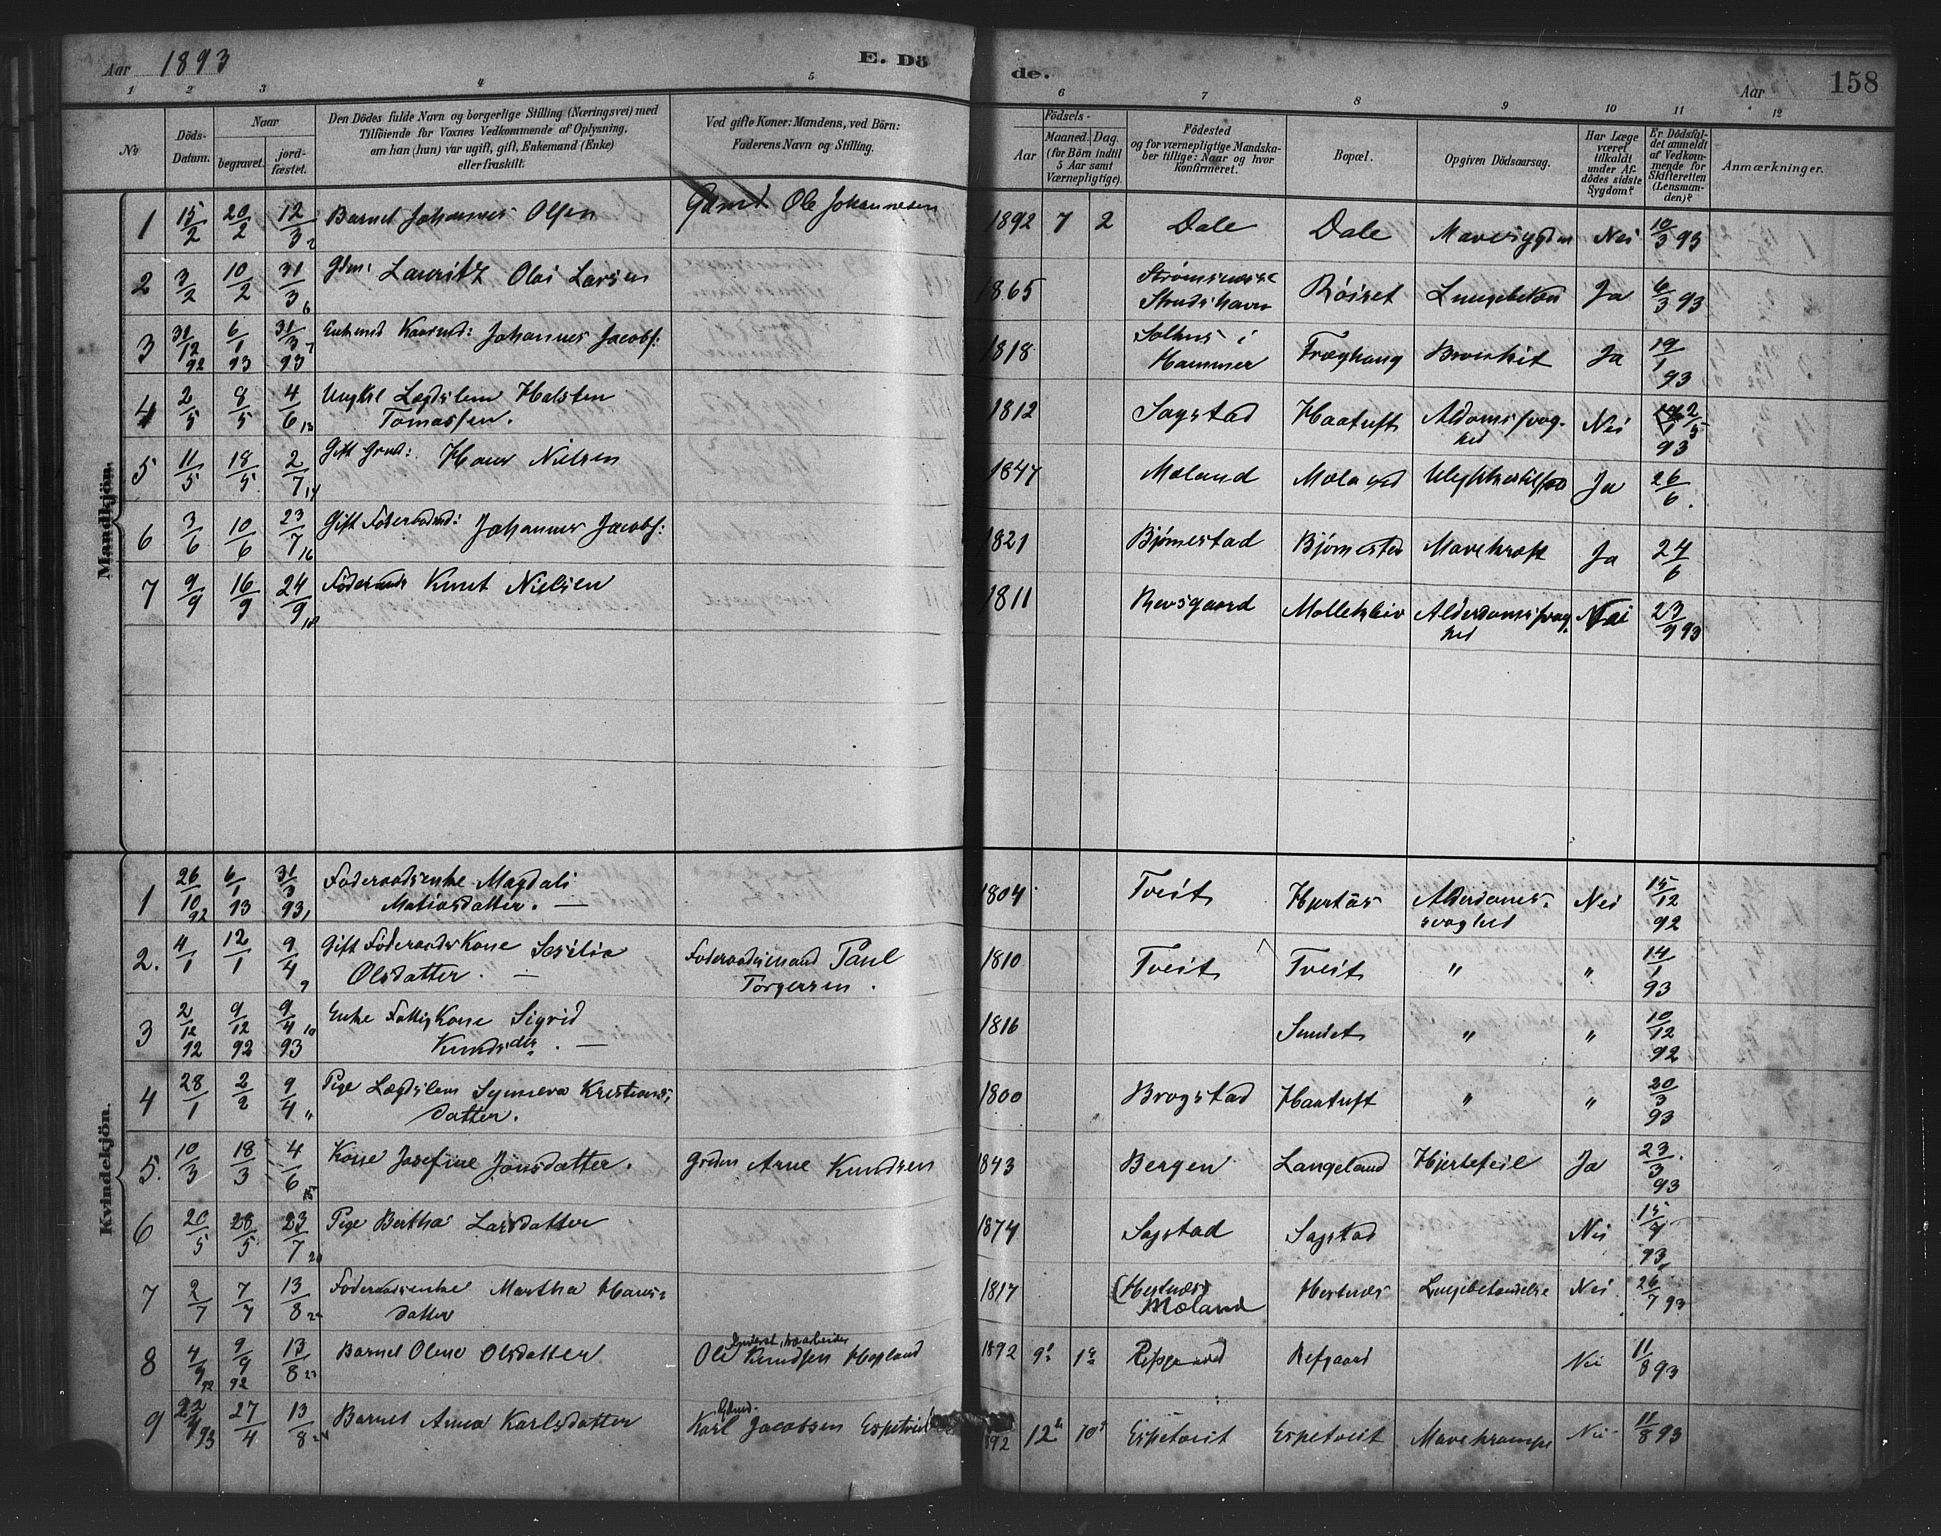 Aar 1893
E. Dö
de.
Aar
158
1 2 3 4 5 6 7 8 9 10 11 12
№
Döds-Datum.
Naar
begravet.
jord-fæstet.
Den Dödes fulde Navn og borgerlige Stilling (Næringsvei) med
Tilföiende for Voxnes Vedkommende af Oplysning,
om han (hun) var ugift, gift, Enkemand (Enke)
eller fraskilt.
Ved gifte Koner: Mandens, ved Börn:
Faderens Navn og Stilling.
Födsels-
Aar
Maaned. Dag.
(for Börn indtil
5 Aar samt
Værnepligtige).
Födested
og for værnepligtige Mandska-
ber tillige: Naar og hvor
konfirmeret.
Bopæl.
Opgiven Dödsaarsag.
Har Læge
været
tilkaldt
under Af-
dödes sidste
Sygdom?
Er Dödsfal-
det anmeldt
af Vedkom-
mende for
Skifteretten
(Lensman-
den)?
Anmærkninger.
Mandkjön.
1 15/2 20/2 12/3 2 Barnet Johannes Olsen Gdmd Ole Johannesen 1892 7 2 Dale Dale Mavesygdm Nei 10/3 93
2 3/2 10/2 31/3 6 Gdm: Lauritz Olai Larsen 1865 Strudshavn Röiset Ja 6/3 93
3 31/12 92 6/1 93 31/3 93 7 Johannes Jacobs: 1818 i Hammer Bronkit Ja 19/1 93
4 2/5 8/5 4/6 13 Ungkl Lægdslem Halsten
Tomassen. 1812 Sagstad Haatuft Aldomssvag-
hed Nei 2/5 93
5 11/5 18/5 2/7 14 Gift Grmd: Hans Nielsen 1847 Moland Moland Ja 26/6.
6 3/6 10/6 23/7 16 Gift Föderaadmd: Johannes Jacobs: 1821 Bjørnestad Bjørnestad Mavekræft Ja 24/6
7 9/9 16/9 24/9 18 Knut Nielsen 1811 Revsgaard Mollekleiv Alderdomssvag-
hed Nei 23/9 93
Kvindekjön.
1 26/10 92 6/1 93 31/3 93 1 Foderaadsenke Magdali
Matiasdatter. — 1804 Tveit Hjertås Alderdoms-
svaghed Nei 15/12 92
2. 4/1 12/1 9/4 9 Gift FöderaadsKone Sesilia
Olsdatter. — Foderaadsmand Paul
Torgersen. 1810 Tveit Tveit " " 14/1 93
3 2/12 92 9/12 92 9/4 93 10 Enke FattigKone Sigrid
Knudsdtr. — 1816 Sundet " " 10/12 92
4 28/1 2/2 9/4 " Pige Lægdslem Synneva Kristians-
datter. 1800 Brogstad Haatuft " " 20/3 93
5. 10/3 18/3 4/6 15 Kone Josefine Jonsdatter. Grdm Arne Knudsen 1843 Bergen Langeland Hjertefeil Ja 23/3 93
6 20/5 28/5 23/7 20 Pige Bertha Larsdatter 1874 Sagstad Sagstad Nei 15/7 93
7 2/7 7/7 13/8 22 Foderaadsenke Martha Hans-
datter 1817 (Hestnæs)
Moland Hestnæs Lungebetændelse Nei 26/7 93
8 4/9 92 9/9 92 13/8 23 Barnet Oline Olsdatter Ole Knudsen Hopland 1892 9d 1ste Refsgaard Nei 11/8 93
9 22/4 93 27/4 13/8 24 Barnet Anna Karlsdatter Gdmd.
Karl Jacobsen Espetveit 1892 12te 10de Espetveit Espetveit Mavekrampe Nei 11/8 93